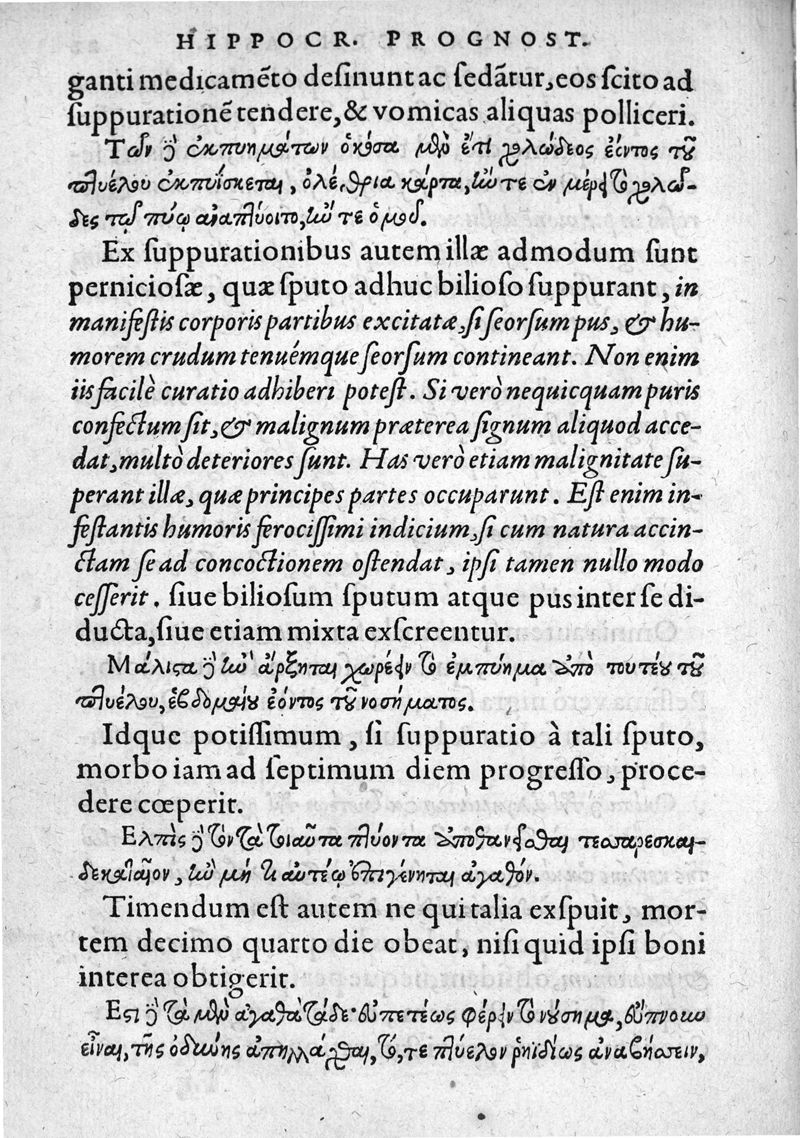 HIPPOCR. PROGNOST.
ganti medicamẽto desinunt ac sedãtur, eos scito ad
suppurationẽ tendere, & vomicas aliquas polliceri.
Τῶν δὲ ἐκπυημάτων ὁκόσα μὲν ἔτι χολώδεος ἐόντος τοῦ
πτυέλου ἐκπυΐσκεται, ὀλέθρια κάρτα, ἤν τε ἐν μέρει τὸ χολῶ-
δες τῷ πύῳ ἀναπτύοιτο, ἤν τε ὁμοῦ.
Ex suppurationibus autem illæ admodum sunt
perniciosæ, quæ sputo adhuc bilioso suppurant, in
manifestis corporis partibus excitatæ, si seorsum pus, & hu-
morem crudum tenuémque seorsum contineant. Non enim
iis facilè curatio adhiberi potest. Si verò nequicquam puris
confectum sit, & malignum præterea signum aliquod acce-
dat, multò deteriores sunt. Has verò etiam malignitate su-
perant illæ, quæ principes partes occuparunt. Est enim in-
festantis humoris ferocissimi indicium, si cum natura accin-
ctam se ad concoctionem ostendat, ipsi tamen nullo modo
cesserit. siue biliosum sputum atque pus inter se di-
ducta, siue etiam mixta exscreentur.
Μάλιστα δὲ ἢν ἄρξηται χωρέειν τὸ ἐμπύημα ἀπὸ τουτέου τοῦ
πτυέλου, ἑβδομαίου ἐόντος τοῦ νοσήματος.
Idque potissimum, si suppuratio à tali sputo,
morbo iam ad septimum diem progresso, proce-
dere cœperit.
Ελπὶς δὲ τὸν τὰ τοιαῦτα πτύοντα ἀποθανεῖσθαι τεσσαρεσκαι-
δεκαταῖον, ἢν μή τι αὐτέῳ ἐπιγένηται ἀγαθόν.
Timendum est autem ne qui talia exspuit, mor-
tem decimo quarto die obeat, nisi quid ipsi boni
interea obtigerit.
Εστι δὲ τὰ μὲν ἀγαθὰ τάδε· εὐπετέως φέρειν τὸ νόσημα, εὔπνοιον
εἶναι, τῆς ὀδύνης ἀπηλλάχθαι, τό, τε πτύελον ῥηϊδίως ἀναβήσσειν,